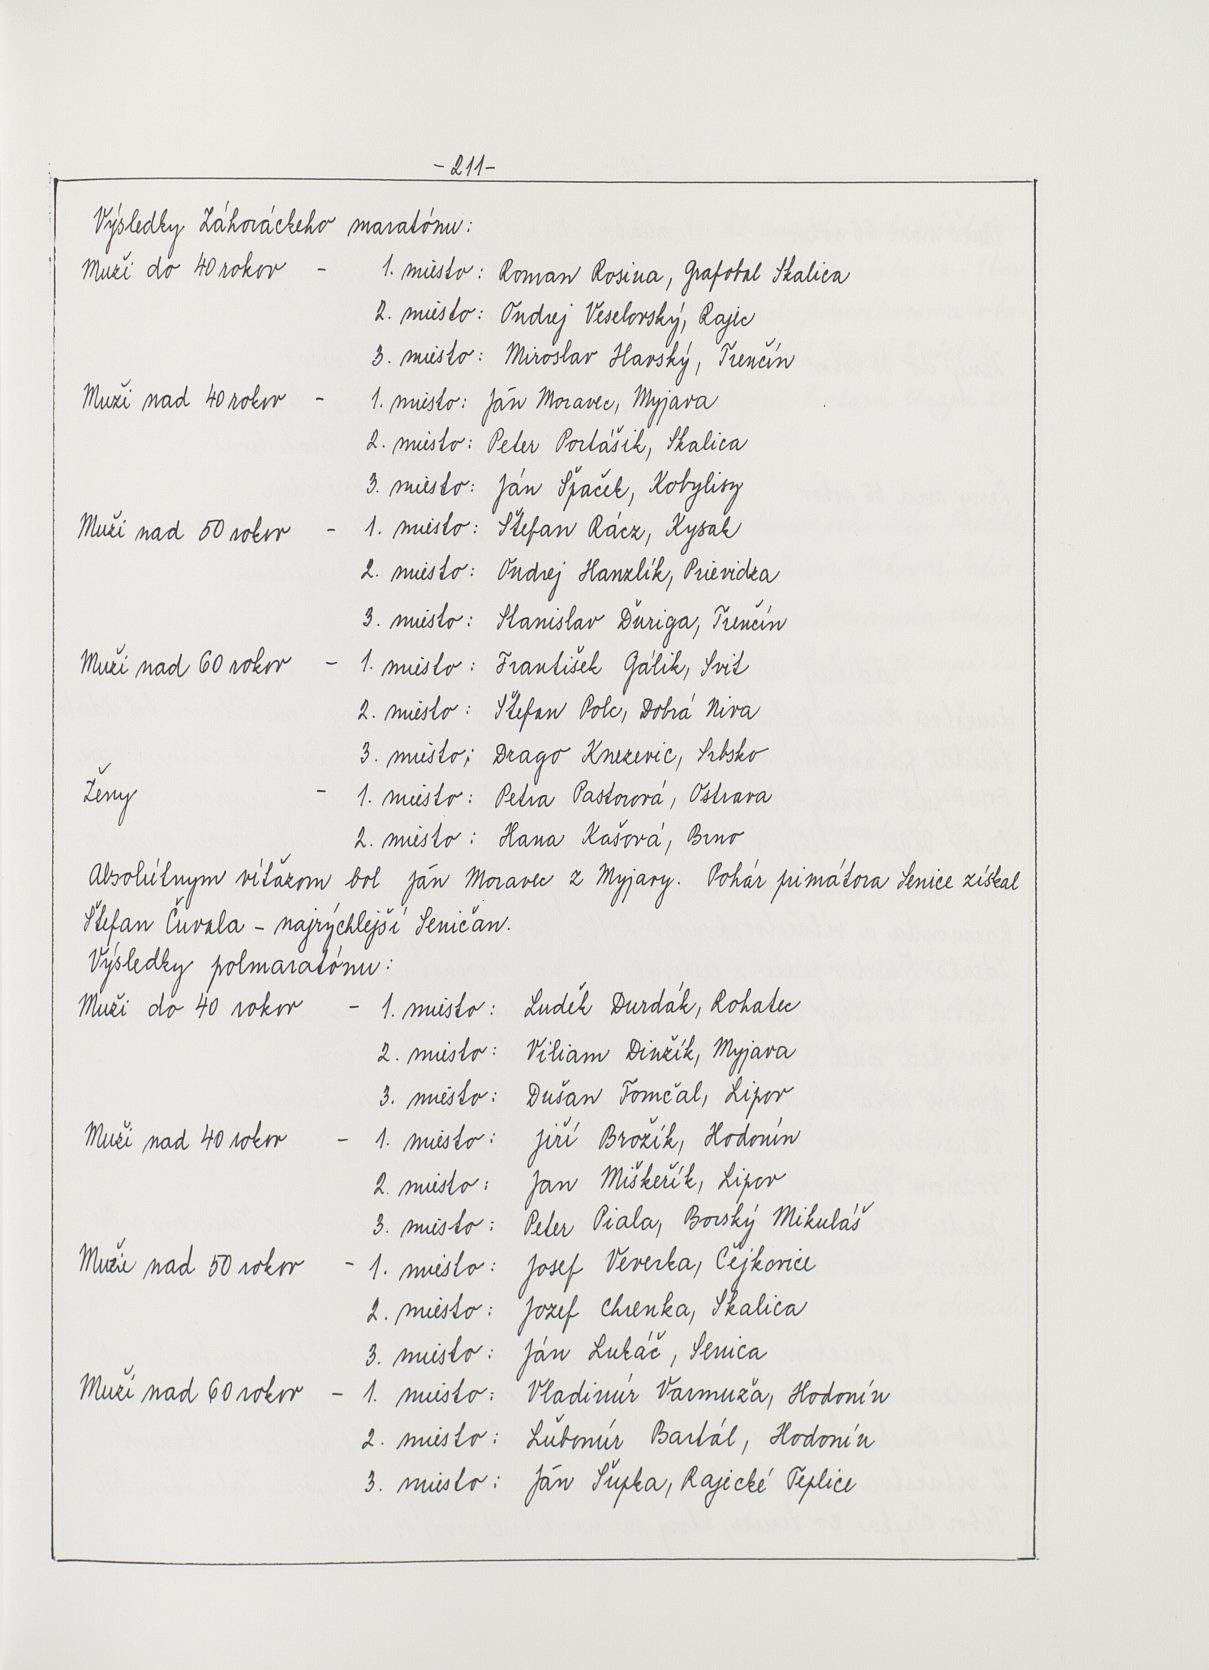 -211-
Výsledky Záhoráckeho maratónu:
Muži do 40 rokov - 1. miesto: Roman Rosina, Grafobal Skalica
2. miesto: Ondrej Veselovský, Rajec
3. miesto: Miroslav Harský, Trenčín
Muži nad 40 rokov - 1. miesto: Ján Moravec, Myjava
2. miesto: Peter Portášik, Skalica
3. miesto: Ján Špaček, Kobylisy
Muži nad 50 rokov - 1. miesto: Štefan Rácz, Kysak
2. miesto: Ondrej Hanzlík, Prievidza
3. miesto: Stanislav Ďuriga, Trenčín
Muži nad 60 rokov - 1. miesto: František Gálik, Svit
2. miesto: Štefan Polc, Dobrá Niva
3. miesto: Drago Knezevic, Srbsko
Ženy - 1. miesto: Petra Pastorová, Ostrava
2. miesto: Hana Kašová, Brno
Absolútnym víťazom bol Ján Moravec z Myjavy. Pohár primátora Senice získal
Štefan Čuvala - najrýchlejší Seničan.
Výsledky polmaratónu:
Muži do 40 rokov - 1. miesto: Luděk Durďák, Rohatec
2. miesto: Viliam Dinžík, Myjava
3. miesto: Dušan Tomčal, Lipov
Muži nad 40 rokov - 1. miesto: Jiří Brožík, Hodonín
2. miesto: Jan Miškeřík, Lipov
3. miesto: Peter Piala, Borský Mikuláš
Muži nad 50 rokov - 1. miesto: Josef Veverka, Čejkovice
2. miesto: Jozef Chrenka, Skalica
3. miesto: Ján Lukáč, Senica
Muži nad 60 rokov - 1. miesto: Vladimír Varmuža, Hodonín
2. miesto: Ľubomír Bartál, Hodonín
3. miesto: Ján Šupka, Rajecké Teplice